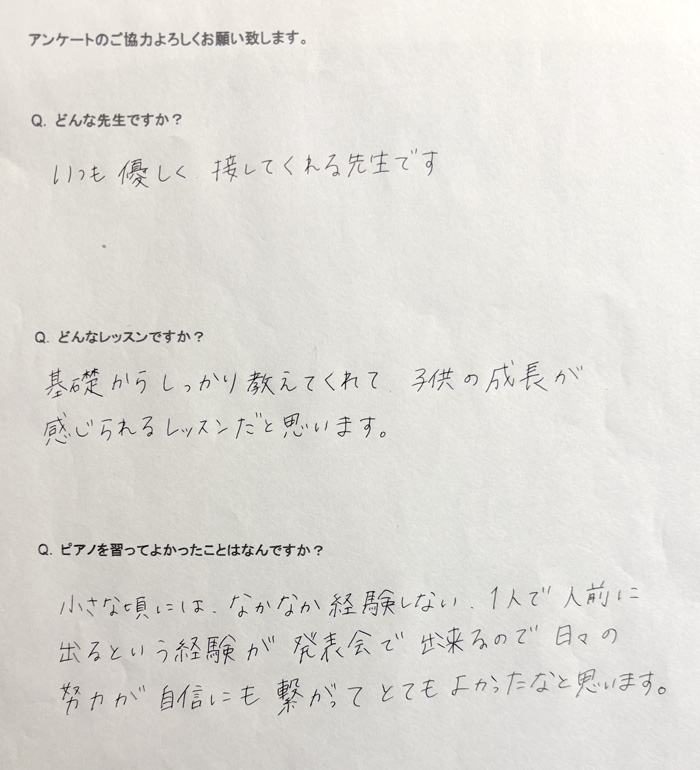 アンケートのご協力よろしくお願い致します。
Q. どんな先生ですか？
いつも優しく、接してくれる先生です
Q. どんなレッスンですか？
基礎からしっかり教えてくれて、子供の成長が
感じられるレッスンだと思います。
Q. ピアノを習ってよかったことはなんですか？
小さな頃には、なかなか経験しない、1人で人前に
出るという経験が発表会で出来るので日々の
努力が自信にも繋がってとてもよかったなと思います。